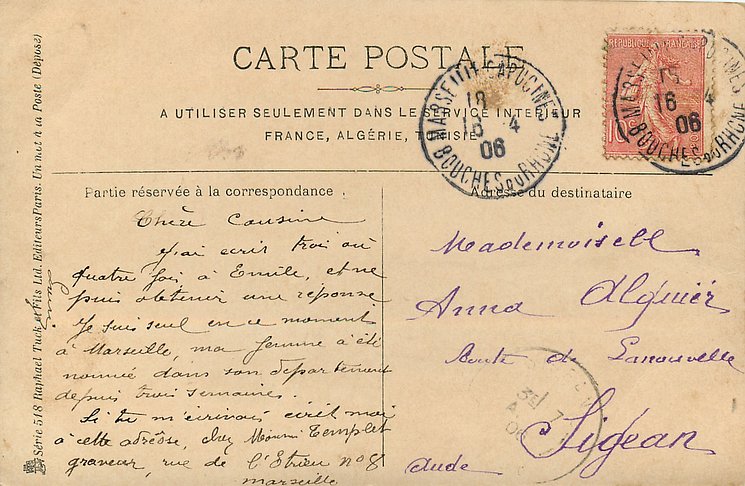 CARTE POSTALE
A UTILISER SEULEMENT DANS LE SERVICE INTÉRIEUR
FRANCE, ALGÉRIE, TUNISIE
MARSEILLE CAPUCINES
18
16 4
06
BOUCHES DU RHONE
RÉPUBLIQUE FRANÇAISE
10
MARSEILLE CAPUCINES
18
16 4
06
BOUCHES DU RHONE
Partie réservée à la correspondance
Adresse du destinataire
Chère Cousine
J'ai ecrit trois ou
quatre fois, à Emile, et ne
puis obtenir une réponse
Je suis seul en ce moment
à Marseille, ma femme a été
nommée dans son departement
depuis trois semaines.
Si tu m'écrivais écrit moi
à cette adrésse, chez Templet
graveur, rue de l'Etrieu no 8
marseille
Louis
Mademoisell
Anna Alguièr
Route de Lanouvelle
Sigean
Aude
Série 518 Raphael Tuck et Fils Ltd. Editeurs Paris. Un mot à la Poste (Déposé)